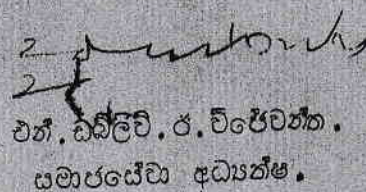 එන්. ඩබ්ලිව්. ඒ. විජේවන්ත.
සමාජසේවා අධ්‍යක්ෂ.